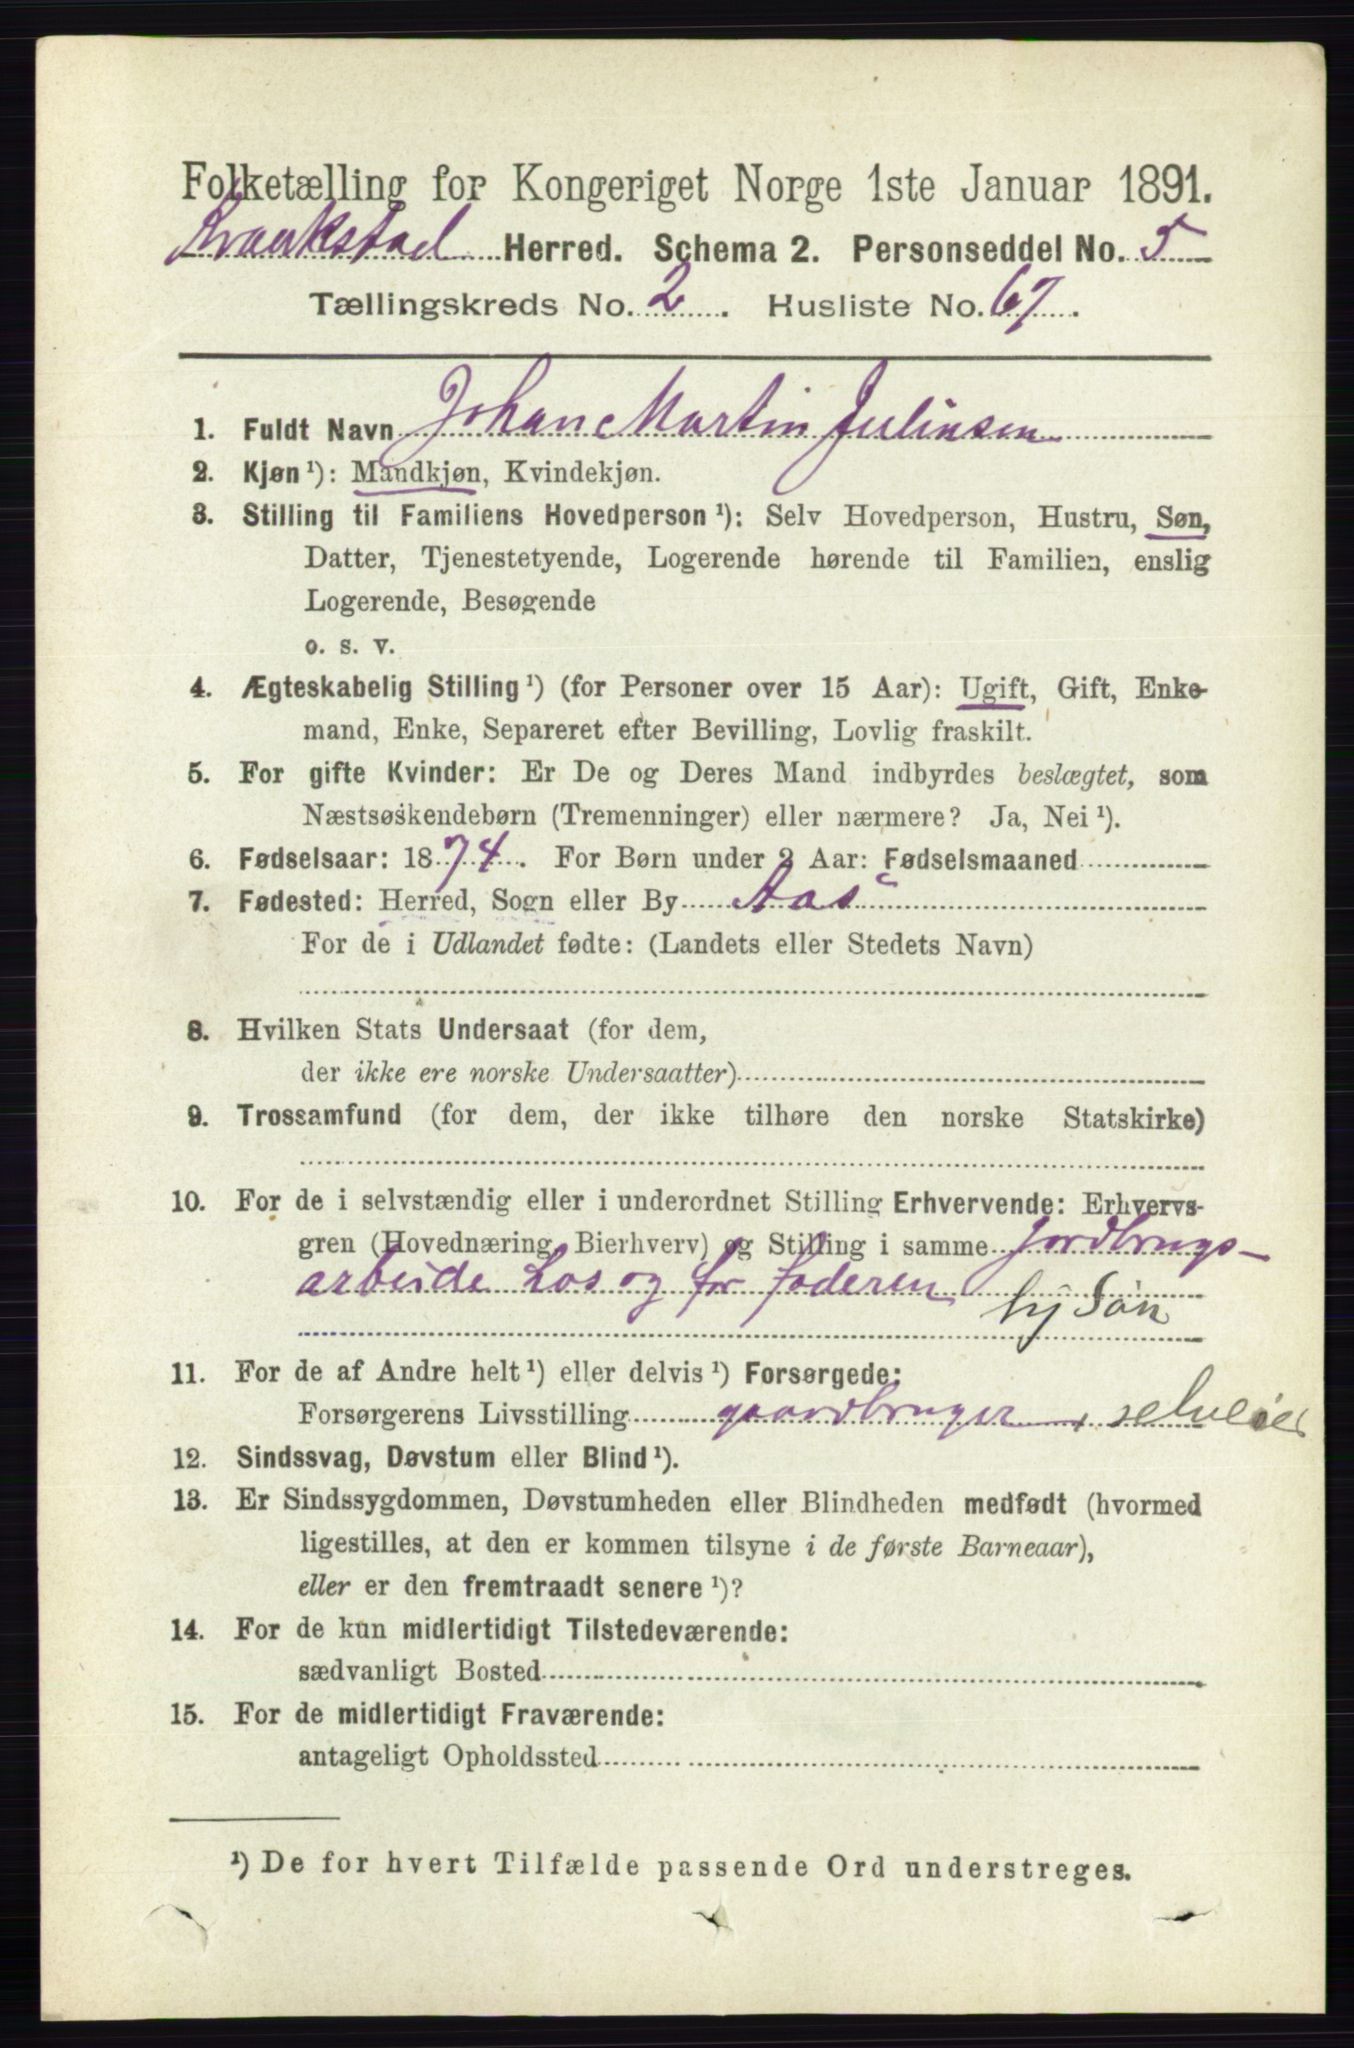 Folketælling for Kongeriget Norge 1ste Januar 1891.
Kraakstad Herred. Schema 2. Personseddel No. 5
Tællingskreds No. 2. Husliste No. 67.
1. Fuldt Navn Johan Martin Julinsen
2. Kjøn ¹): Mandkjøn, Kvindekjøn.
3. Stilling til Familiens Hovedperson ¹): Selv Hovedperson, Hustru, Søn,
Datter, Tjenestetyende, Logerende hørende til Familien, enslig
Logerende, Besøgende
o. s. v.
4. Ægteskabelig Stilling ¹) (for Personer over 15 Aar): Ugift, Gift, Enke-
mand, Enke, Separeret efter Bevilling, Lovlig fraskilt.
5. For gifte Kvinder: Er De og Deres Mand indbyrdes beslægtet, som
Næstsøskendebørn (Tremenninger) eller nærmere? Ja, Nei ¹).
6. Fødselsaar: 1874. For Børn under 2 Aar: Fødselsmaaned
7. Fødested: Herred, Sogn eller By Aas
For de i Udlandet fødte: (Landets eller Stedets Navn)
8. Hvilken Stats Undersaat (for dem,
der ikke ere norske Undersaatter)
9. Trossamfund (for dem, der ikke tilhøre den norske Statskirke)
10. For de i selvstændig eller i underordnet Stilling Erhvervende: Erhvervs-
gren (Hovednæring, Bierhverv) og Stilling i samme Jordbrugs-
arbeide hos og for faderen
hj Søn
11. For de af Andre helt ¹) eller delvis ¹) Forsørgede:
Forsørgerens Livsstilling gaardbruger, selveier
12. Sindssvag, Døvstum eller Blind ¹).
13. Er Sindssygdommen, Døvstumheden eller Blindheden medfødt (hvormed
ligestilles, at den er kommen tilsyne i de første Barneaar),
eller er den fremtraadt senere ¹)?
14. For de kun midlertidigt Tilstedeværende:
sædvanligt Bosted
15. For de midlertidigt Fraværende:
antageligt Opholdssted
¹) De for hvert Tilfælde passende Ord understreges.